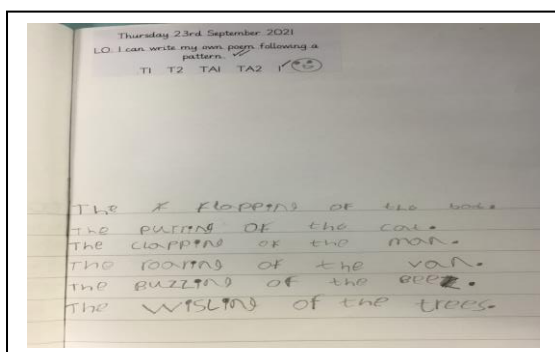 Thursday 23rd September 2021
LO: I can write my own poem following a
pattern.
T1 T2 TA1 TA2 I
The flapping of the bat.
The purring of the cat.
The clapping of the man.
The roaring of the van.
The buzzing of the bee.
The wisling of the trees.